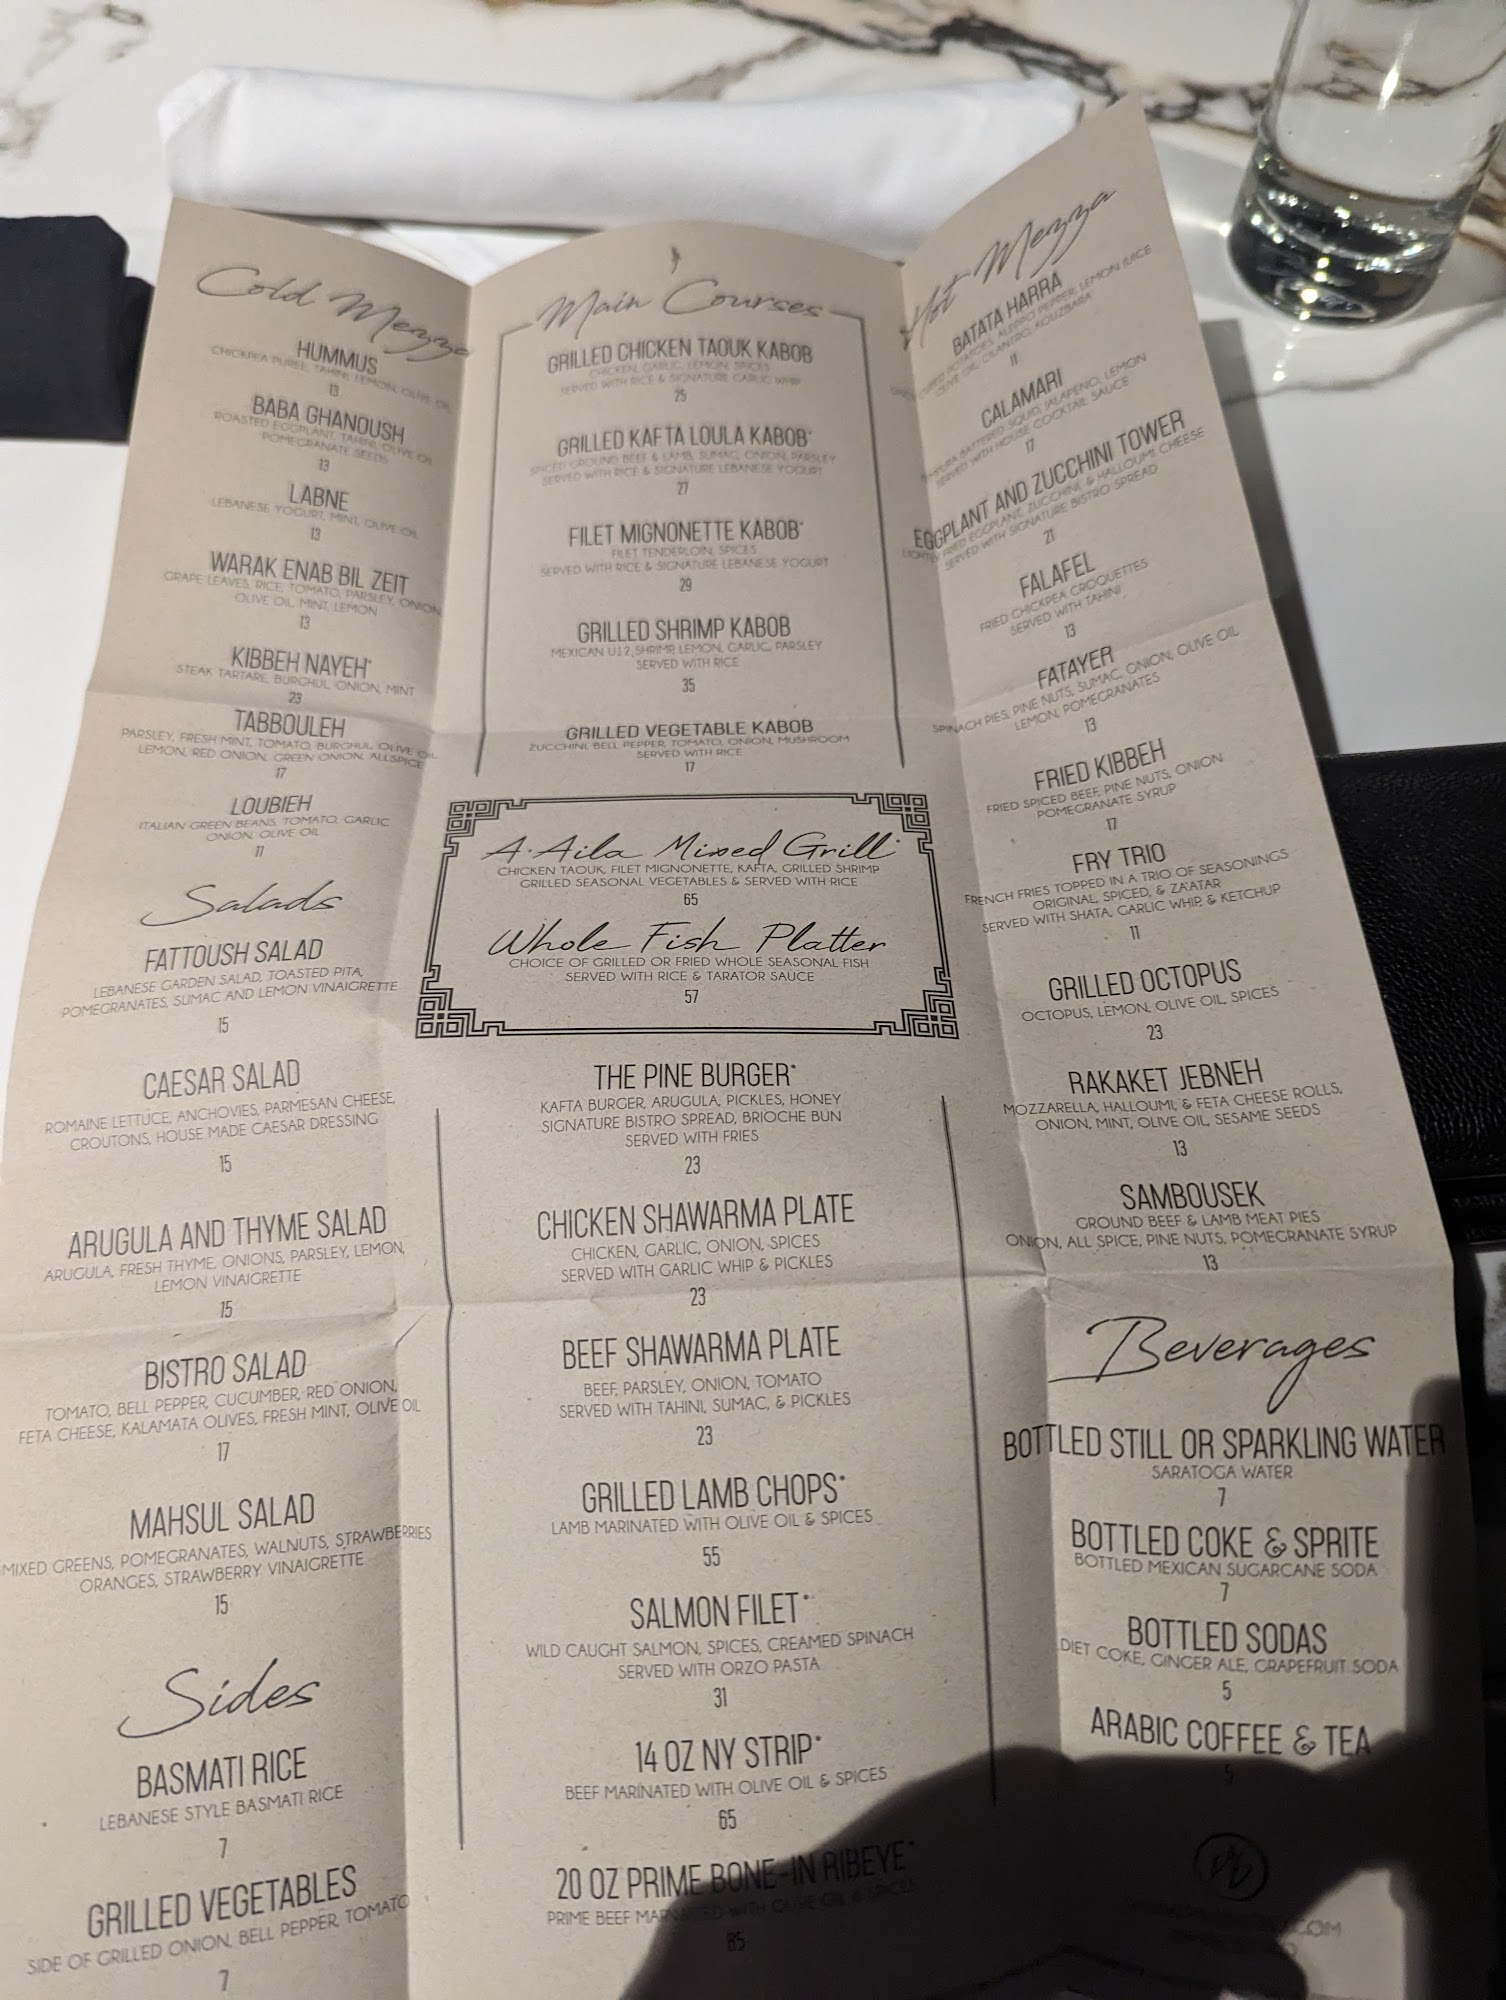 Cold Mezza
HUMMUS
CHICKPEA PUREE, TAHINI, LEMON, OLIVE OIL
13
BABA GHANOUSH
ROASTED EGGPLANT, TAHINI, OLIVE OIL
POMEGRANATE SEEDS
13
LABNE
LEBANESE YOGURT, MINT, OLIVE OIL
13
WARAK ENAB BIL ZEIT
GRAPE LEAVES, RICE, TOMATO, PARSLEY, ONION
OLIVE OIL, MINT, LEMON
13
KIBBEH NAYEH*
STEAK TARTARE, BURCHUL, ONION, MINT
23
TABBOULEH
PARSLEY, FRESH MINT, TOMATO, BURCHUL, OLIVE OIL
LEMON, RED ONION, GREEN ONION, ALLSPICE
17
LOUBIEH
ITALIAN GREEN BEANS, TOMATO, GARLIC
ONION, OLIVE OIL
11
Salads
FATTOUSH SALAD
LEBANESE GARDEN SALAD, TOASTED PITA,
POMEGRANATES, SUMAC AND LEMON VINAIGRETTE
15
CAESAR SALAD
ROMAINE LETTUCE, ANCHOVIES, PARMESAN CHEESE,
CROUTONS, HOUSE MADE CAESAR DRESSING
15
ARUGULA AND THYME SALAD
ARUGULA, FRESH THYME, ONIONS, PARSLEY, LEMON,
LEMON VINAIGRETTE
15
BISTRO SALAD
TOMATO, BELL PEPPER, CUCUMBER, RED ONION,
FETA CHEESE, KALAMATA OLIVES, FRESH MINT, OLIVE OIL
17
MAHSUL SALAD
MIXED GREENS, POMEGRANATES, WALNUTS, STRAWBERRIES
ORANGES, STRAWBERRY VINAIGRETTE
15
Sides
BASMATI RICE
LEBANESE STYLE BASMATI RICE
7
GRILLED VEGETABLES
SIDE OF GRILLED ONION, BELL PEPPER, TOMATO
7
Main Courses
GRILLED CHICKEN TAOUK KABOB
CHICKEN, GARLIC, LEMON, SPICES
SERVED WITH RICE & SIGNATURE GARLIC WHIP
25
GRILLED KAFTA LOULA KABOB*
SPICED GROUND BEEF & LAMB, SUMAC, ONION, PARSLEY
SERVED WITH RICE & SIGNATURE LEBANESE YOGURT
27
FILET MIGNONETTE KABOB*
FILET TENDERLOIN, SPICES
SERVED WITH RICE & SIGNATURE LEBANESE YOGURT
29
GRILLED SHRIMP KABOB
MEXICAN U12 SHRIMP, LEMON, GARLIC, PARSLEY
SERVED WITH RICE
35
GRILLED VEGETABLE KABOB
ZUCCHINI, BELL PEPPER, TOMATO, ONION, MUSHROOM
SERVED WITH RICE
17
A•Aila Mixed Grill*
CHICKEN TAOUK, FILET MIGNONETTE, KAFTA, GRILLED SHRIMP
GRILLED SEASONAL VEGETABLES & SERVED WITH RICE
65
Whole Fish Platter
CHOICE OF GRILLED OR FRIED WHOLE SEASONAL FISH
SERVED WITH RICE & TARATOR SAUCE
57
THE PINE BURGER*
KAFTA BURGER, ARUGULA, PICKLES, HONEY
SIGNATURE BISTRO SPREAD, BRIOCHE BUN
SERVED WITH FRIES
23
CHICKEN SHAWARMA PLATE
CHICKEN, GARLIC, ONION, SPICES
SERVED WITH GARLIC WHIP & PICKLES
23
BEEF SHAWARMA PLATE
BEEF, PARSLEY, ONION, TOMATO
SERVED WITH TAHINI, SUMAC, & PICKLES
23
GRILLED LAMB CHOPS*
LAMB MARINATED WITH OLIVE OIL & SPICES
55
SALMON FILET*
WILD CAUGHT SALMON, SPICES, CREAMED SPINACH
SERVED WITH ORZO PASTA
31
14 OZ NY STRIP*
BEEF MARINATED WITH OLIVE OIL & SPICES
65
20 OZ PRIME BONE-IN RIBEYE*
PRIME BEEF MARINATED WITH OLIVE OIL & SPICES
85
Hot Mezza
BATATA HARRA
CUBED POTATOES, ALEPPO PEPPER, LEMON JUICE
OLIVE OIL, CILANTRO, KOUZBARA
11
CALAMARI
TEMPURA BATTERED SQUID, JALAPENO, LEMON
SERVED WITH HOUSE COCKTAIL SAUCE
17
EGGPLANT AND ZUCCHINI TOWER
LIGHTLY FRIED EGGPLANT, ZUCCHINI, & HALLOUMI CHEESE
SERVED WITH SIGNATURE BISTRO SPREAD
21
FALAFEL
FRIED CHICKPEA CROQUETTES
SERVED WITH TAHINI
13
FATAYER
SPINACH PIES, PINE NUTS, SUMAC, ONION, OLIVE OIL
LEMON, POMEGRANATES
13
FRIED KIBBEH
FRIED SPICED BEEF, PINE NUTS, ONION
POMEGRANATE SYRUP
17
FRY TRIO
FRENCH FRIES TOPPED IN A TRIO OF SEASONINGS
ORIGINAL, SPICED, & ZA'ATAR
SERVED WITH SHATA, GARLIC WHIP, & KETCHUP
11
GRILLED OCTOPUS
OCTOPUS, LEMON, OLIVE OIL, SPICES
23
RAKAKET JEBNEH
MOZZARELLA, HALLOUMI, & FETA CHEESE ROLLS,
ONION, MINT, OLIVE OIL, SESAME SEEDS
13
SAMBOUSEK
GROUND BEEF & LAMB MEAT PIES
ONION, ALL SPICE, PINE NUTS, POMEGRANATE SYRUP
13
Beverages
BOTTLED STILL OR SPARKLING WATER
SARATOGA WATER
7
BOTTLED COKE & SPRITE
BOTTLED MEXICAN SUGARCANE SODA
7
BOTTLED SODAS
DIET COKE, GINGER ALE, GRAPEFRUIT SODA
5
ARABIC COFFEE & TEA
5